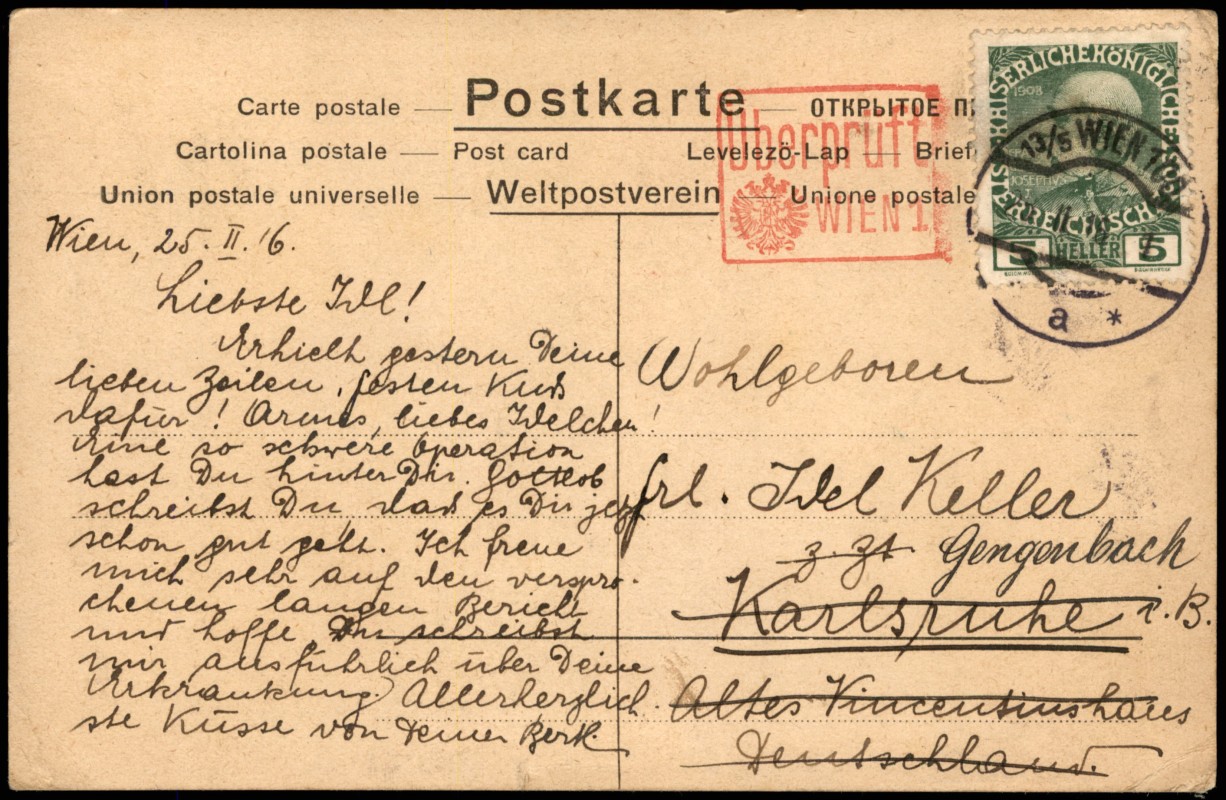 Carte postale — Postkarte — ОТКРЫТОЕ
Cartolina postale — Post card Levelezö-Lap — Brief
Union postale universelle — Weltpostverein — Unione postale
Überprüft
WIEN 1
KAISERLICHEKÖNIGLICHE
ÖSTERREICHISCHE
1908
5 HELLER 5
13/5 WIEN
a *
Wien, 25. II. 16.
Liebste Idl!
Erhielt gestern Deine
lieben Zeilen, festen Kuß
dafür! Armes, liebes Idelchen!
Eine so schwere Operation
hast Du hinter Dir. Gottlob
schreibst Du, daß es Dir jetzt
schon gut geht. Ich freue
mich sehr auf den verspro-
chenen langen Bericht
und hoffe, Du schreibst
mir ausführlich über Deine
Erkrankung. Allerherzlich-
ste Küsse von Deiner Berth.
Wohlgeboren
Frl. Idel Keller
z. Zt. Gengenbach
Karlsruhe i. B.
Altes Vincentiushaus
Deutschland.